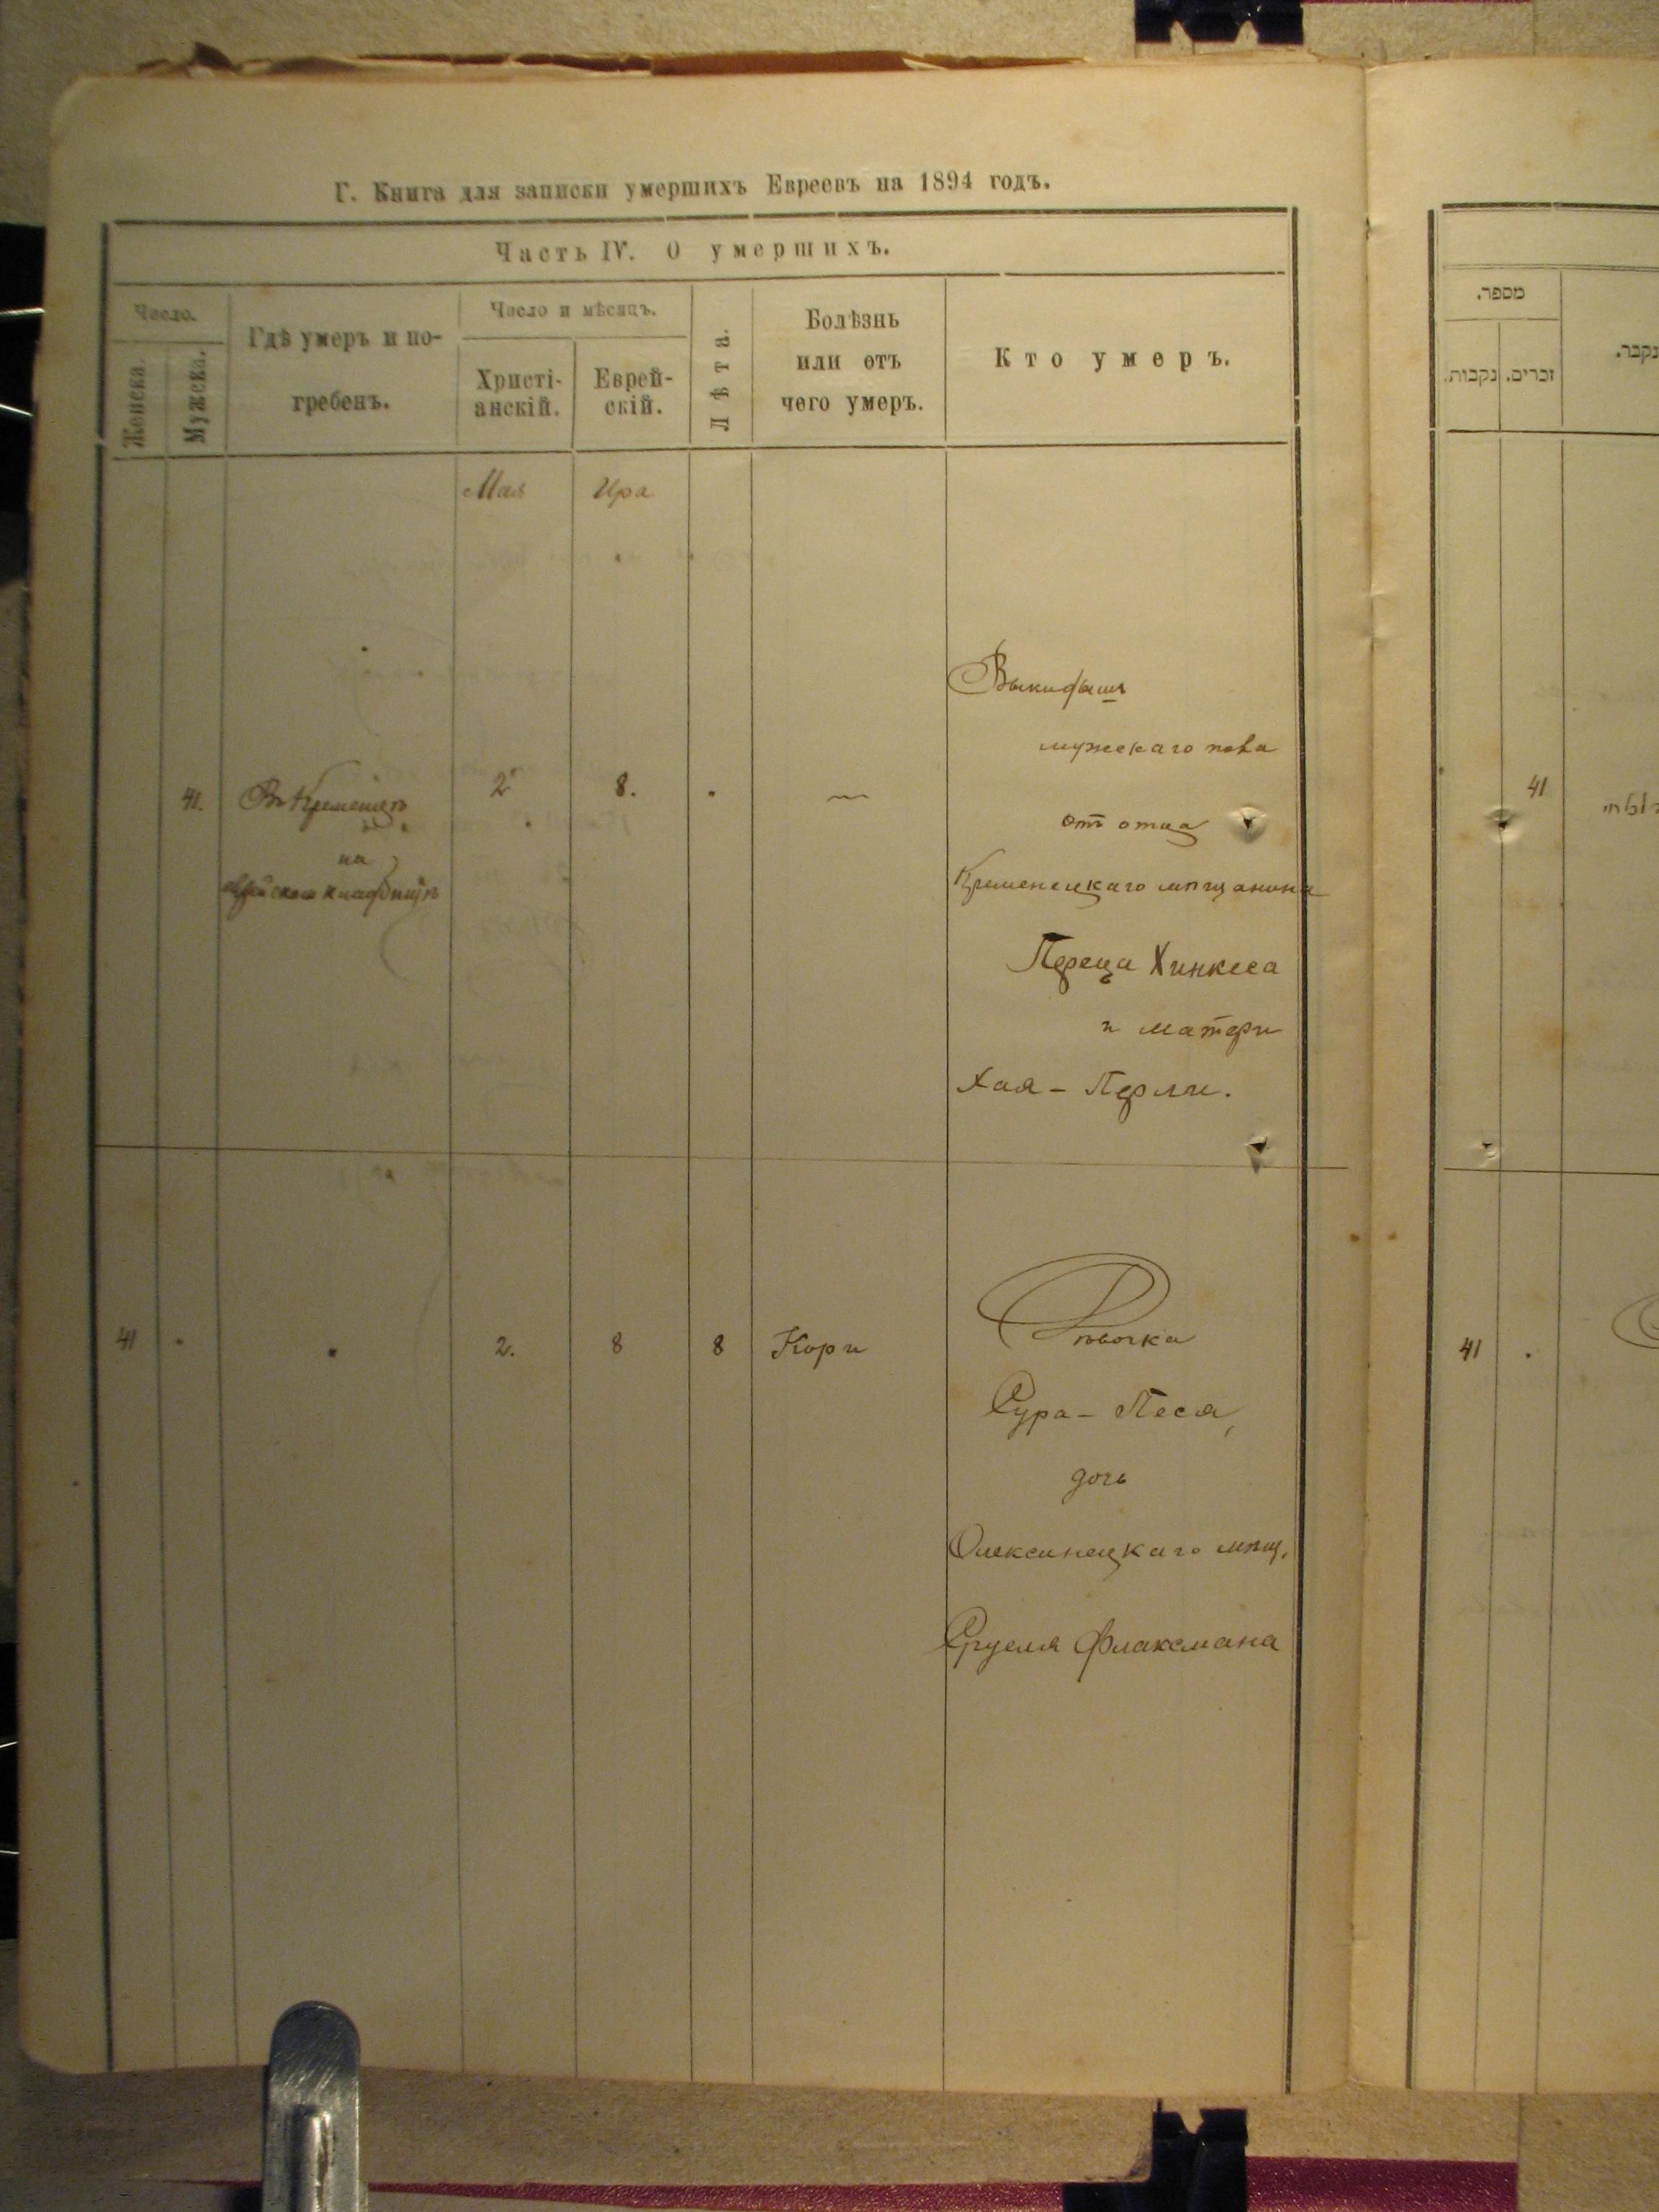 Г. Книга для записки умершихъ Евреевъ на 1894 годъ.
Часть IV. О умершихъ.
Число.
Женска.
Мужска.
Гдѣ умеръ и по-
гребенъ.
Число и мѣсяцъ.
Христі-
анскій.
Еврей-
скій.
Лѣта.
Болѣзнь
или отъ
чего умеръ.
Кто умеръ.
Мая
Ира
Выкидышъ
мужскаго пола
41.
Въ Кременцѣ
2
8.
отъ отца
на
еврейском кладбищѣ
Кременецкаго мѣщанина
Переца Хинкеса
и матери
Хая - Перли.
41
2.
8
8
Кори
Дѣвочка
Сура - Песя,
дочь
Олексинецкаго мѣщ.
Сруеля Флаксмана
מספר.
זכרים.
נקבות.
נקבר.
41
41